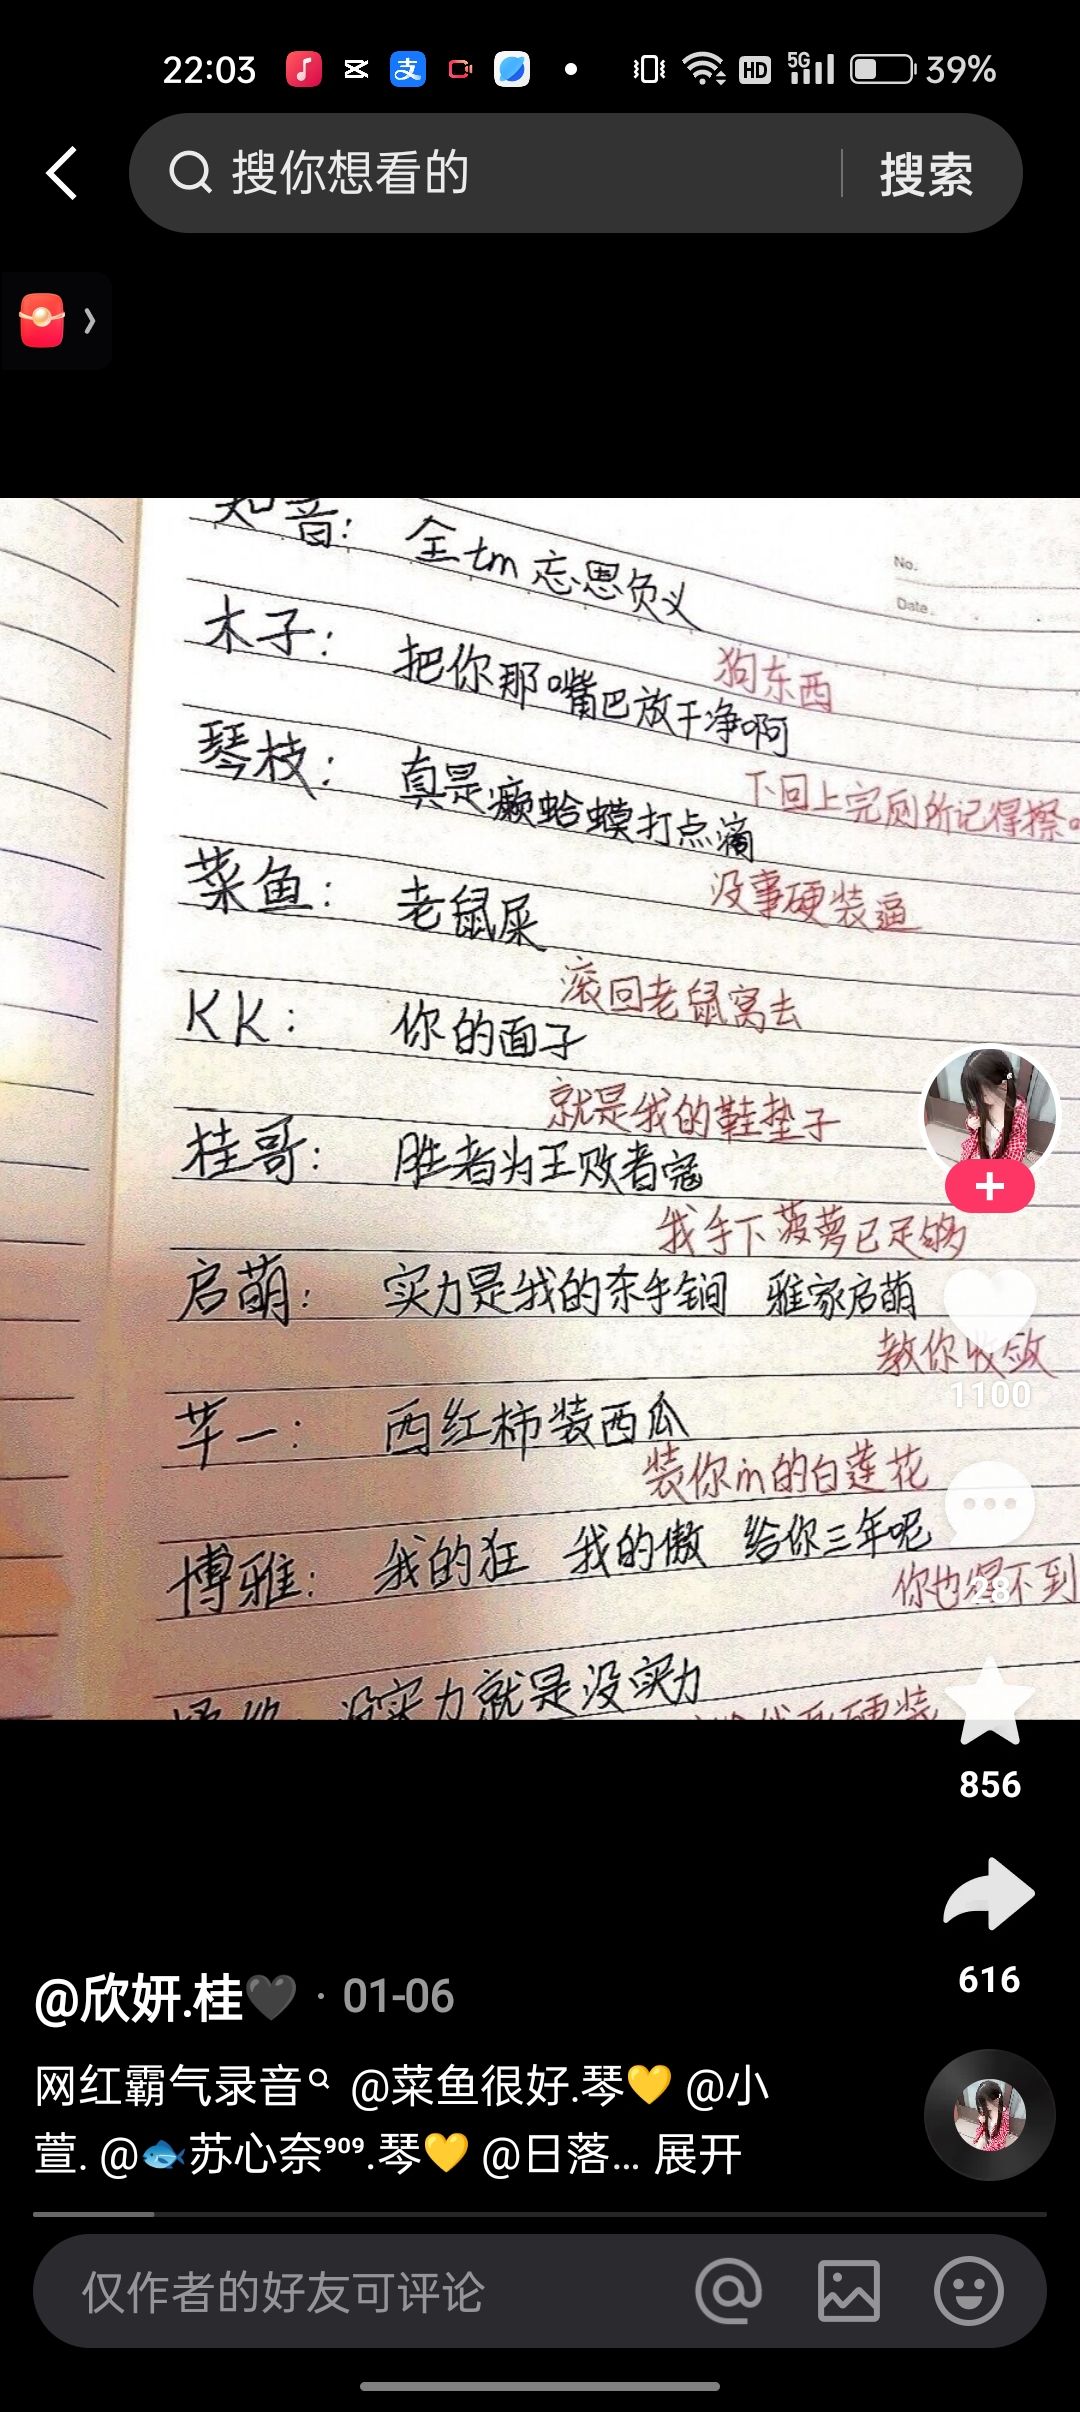 22:03
HD
5G
39%
搜你想看的
搜索
知音: 全tm忘恩负义
No.
Date.
狗东西
木子: 把你那嘴巴放干净啊
下回上完厕所记得擦
琴枝: 真是癞蛤蟆打点滴
没事硬装逼
菜鱼: 老鼠屎
滚回老鼠窝去
KK: 你的面子
就是我的鞋垫子
桂哥: 胜者为王败者寇
我手下菠萝已足够
启萌: 实力是我的杀手锏 雅家启萌
教你收敛
1100
芊一: 西红柿装西瓜
装你m的白莲花
博雅: 我的狂 我的傲 给你三年呢
你也得不到
28
没实力就是没实力
硬装
856
616
@欣妍.桂🖤 · 01-06
网红霸气录音 @菜鱼很好.琴💛 @小
萱. @🐟苏心奈⁹⁰⁹.琴💛 @日落... 展开
仅作者的好友可评论